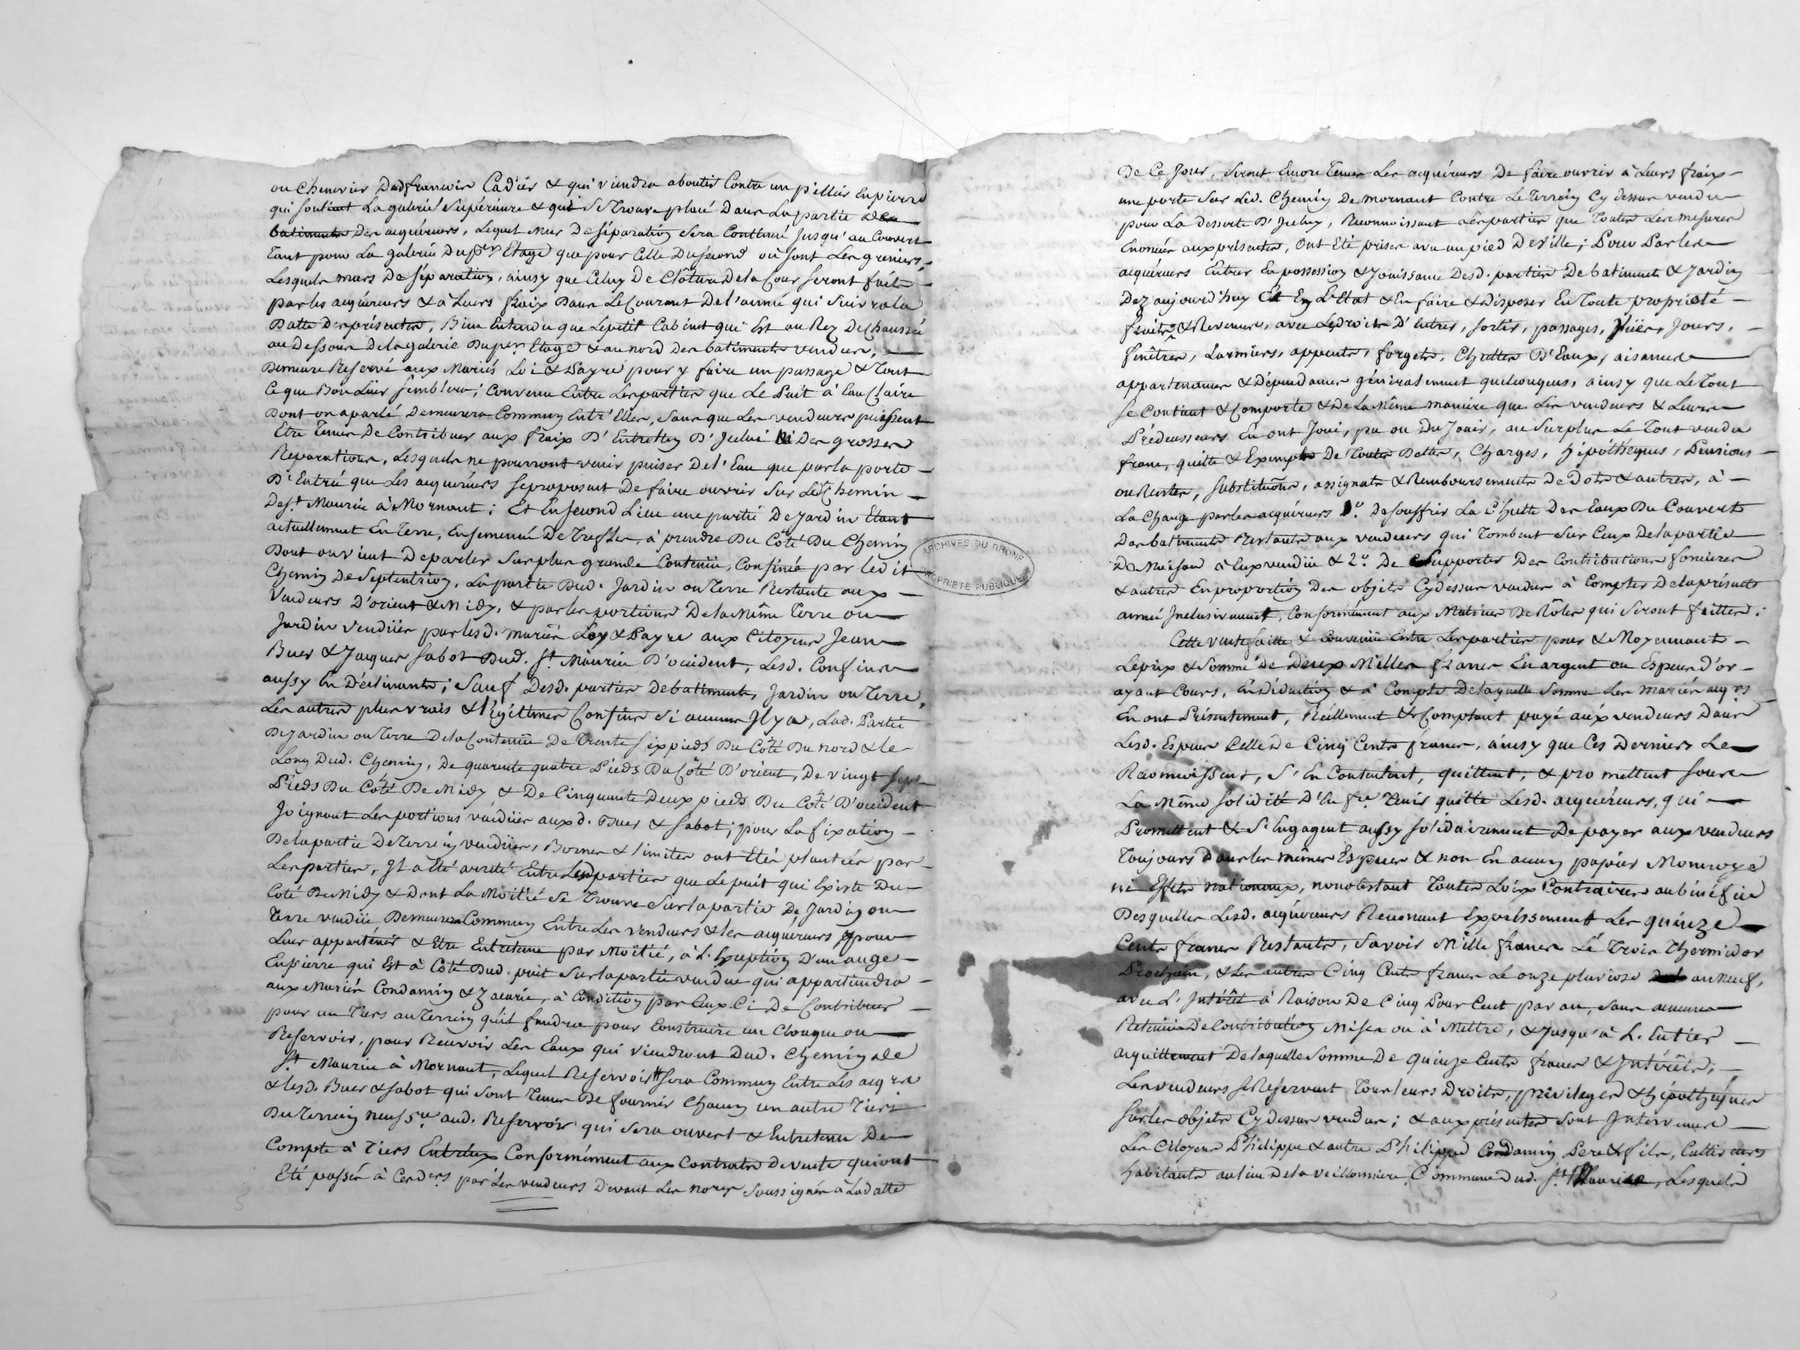 ou Chenevier Dud françois Cadier & qui viendra aboutir Contre un pillier En pierre
qui soutient La galerie Supérieure & qui Se Trouve placé Dans La partie des
batiments Des acquéreurs, Lequel mur De séparation Sera Continué Jusqu'au Couvert
Tant pour La galerie Du pr. Etage que pour Celle Du second où sont Les greniers,
Lesquels murs De séparation, ainsy que Celuy De Clôture De la Cour seront faits
par les acquéreurs & à Leurs fraix Dans Le Courant De l'année qui suivra la
Datte Des présentes, Bien Entendu que Le petit Cabinet qui Est au Rez De Chaussée
au Dessous De la galerie Du pr. Etage & au nord Des batiments vendus,
Demeure Réservé aux Mariés Loi & Payre pour y faire un passage & Tout
Ce que Bon Leur semblera; Convenu Entre Les parties que Le Puit à Eau Claire
Dont on a parlé Demeurera Commun Entr'Elles, Sans que Les vendeurs puissent
Etre Tenus De Contribuer aux fraix D'Entretien D'Icelui Ni Des grosses
Réparations, Lesquels ne pourront venir puiser De l'Eau que par la porte
D'Entrée que Les acquéreurs se proposent De faire ouvrir Sur Led. Chemin
De St. Maurice à Mornant; Et En second Lieu une partie De Jardin Etant
actuellement En Terre, Ensemencé De Treffle, à prendre Du Côté Du Chemin
Dont on vient De parler Sur plus grande Contenue, Confinée par Ledit
Chemin De Septentrion, La partie Dud. Jardin ou Terre Restante aux
Vendeurs D'orient & Midy, & par les portions De la Même Terre ou
Jardin vendües par lesd. mariés Loy & Payre aux Citoyens Jean
Buer & Jacques Sabot Dud. St. Maurice D'occident, Lesd. Confins
aussy En Déclinants; Sauf Desd. parties De batiments, Jardin ou Terre,
Les autres plus vrais & légitimes Confins Si aucuns Il y a, Lad. Partie
De Jardin ou Terre De la Contenüe De Trente Six pieds Du Côté Du nord & le
Long Dud. Chemin, De quarente quatre Pieds Du Côté D'orient, De vingt sept
Pieds Du Côté De Midy & De Cinquante Deux pieds Du Côté D'occident
Joignant Les portions vendües aux d. Buer & Sabot; pour La fixation
De la partie De Terrein vendüe, Bornes & limites ont Eté plantées par
Les parties, Il a été arreté Entre Les parties que Le puit qui Existe Du
Coté De Midy & Dont La Moitié Se Trouve Sur la partie De Jardin ou
Terre vendüe Demeurera Commun Entre Les vendeurs & les acquéreurs pour
Leur appartenir & Etre Entretenu par Moitié, à L'Exception D'un auge
En pierre qui Est à Côté Dud. puit Sur la partie vendue qui appartiendra
aux Mariés Condamin & Zacarie, à Condition par Eux Ci De Contribuer
pour un Tiers au Terrein qu'il faudra pour Construire un Chouque ou
Réservoir, pour Recevoir Les Eaux qui viendront Dud. Chemin de
St. Maurice à Mornant, Lequel Reservoir Sera Commun Entre Les acqrs.
& lesd. Buer & Sabot qui Sont Tenus De fournir Chacun un autre Tiers
Du Terrein necess.re aud. Reservoir qui Sera ouvert & Entretenu De
Compte à Tiers Entr'eux Conformément aux Contrats de vente qui ont
Eté passés à Ces ders. par Les vendeurs Devant Les nores. Soussignés à La datte
De Ce Jour, Seront Encore Tenus Les acquéreurs De faire ouvrir à Leurs fraix
une porte Sur Led. Chemin De mornant Contre Le Terrein Cy Dessus vendu
pour La desserte D'Iceluy, Reconnoissant Les parties que Toutes Les mesures
Enoncées aux présentes, ont Eté prises avec un pied De ville; Pour Par les
acquéreurs Entrer En possession & Jouissance Desd. parties De batiment & Jardin
Dez aujourd'huy Et En L'Etat & En faire & Disposer En Toute propriété
fruits & Revenus, avec Les Droits D'Entrer, sortir, passages, Vües, Jours,
fenêtres, Larmiers, appents, forgets, Chuttes D'Eaux, aisances
appartenances & Dépendances généralement quelconques, ainsy que Le Tout
Se Contient & Comporte & De la Même manière que Les vendeurs & Leurs
Prédécesseurs En ont Joui, pu ou Du Jouir, au Surplus Le Tout vendu
franc, quitte & Exempts De Toutes Dettes, Charges, hipothèques, Pensions
ou Rentes, substitutions, assignats & Remboursements De Dots & autres, à
La Charge par les acquéreurs 1°. De souffrir La Chutte Des Eaux Du Couvert
Des batiments Restants aux vendeurs qui Tombent Sur Ceux De la partie
De Maison à Eux vendüe & 2°. De Supporter Des Contributions foncières
& autres En proportion Des objets Cy dessus vendus à Compter De la présente
année Inclusivement, Conformément aux Matrices De Rôles qui Seront faittes;
Cette vente faitte & Convenüe Entre Les parties pour & Moyennant
Le prix & Somme De Deux Milles francs En argent ou Especes D'or
ayant Cours, En Déduction & à Compte De laquelle Somme Les mariés acqrs.
En ont Présentement, Réellement & Comptant payé aux vendeurs Dans
Lesd. Especes Celle De Cinq Cents francs, ainsy que Ces Derniers Le
Reconnoissent, S'En Contentent, quittent, & promettent sous
La Même solidité D'En fre. Tenir quitte Lesd. acquéreurs, qui
Promettent & S'Engagent aussy solidairement De payer aux vendeurs
Toujours Dans les mêmes Especes & non En aucun papier Monnoyé
ni Effets nationaux, nonobstant Toutes Loix Contraires au bénéfice
Desquelles Lesd. acquéreurs Renoncent Expréssement Les quinze
Cents francs Restants, Savoir Mille francs Le Trois Thermidor
Prochain, & Les autres Cinq Cents francs Le onze pluviose an neuf,
avec L'Intérêt à Raison De Cinq Pour Cent par an, Sans aucune
Retenüe De Contribution Mises ou à Mettre, & Jusqu'à L'Entier
acquittement De laquelle Somme De quinze Cents francs & Intérêts,
Les vendeurs se Reservent Tous Leurs Droits, privileges & hipothèques
Sur les objets Cy dessus vendus; & aux présentes Sont Intervenus
Les Citoyens Philippe & autre Philippe Condamin Pere & fils, Cultivateurs
habitants au lieu De la Veillonniere, Commune dud. St. Maurice, Lesquels
ARCHIVES DU RHONE
PROPRIÉTÉ PUBLIQUE